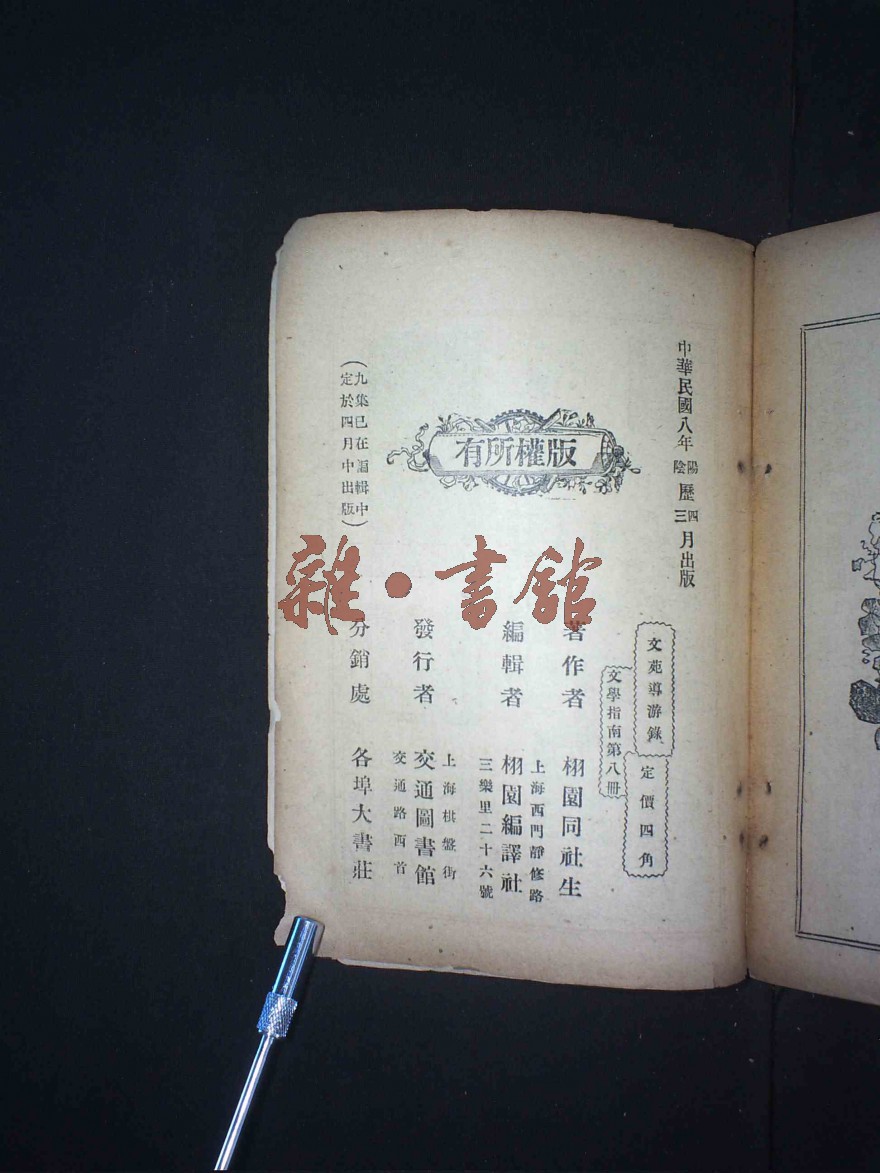 中華民國八年陰陽歷三四月出版
版權所有
文苑導游錄
定價四角
文學指南第八冊
著作者　栩園同社生
上海西門靜修路
編輯者　栩園編譯社
三樂里二十六號
上海棋盤街
發行者　交通圖書館
交通路西首
分銷處　各埠大書莊
（九集已在編輯中
定於四月中出版）
雜·書館